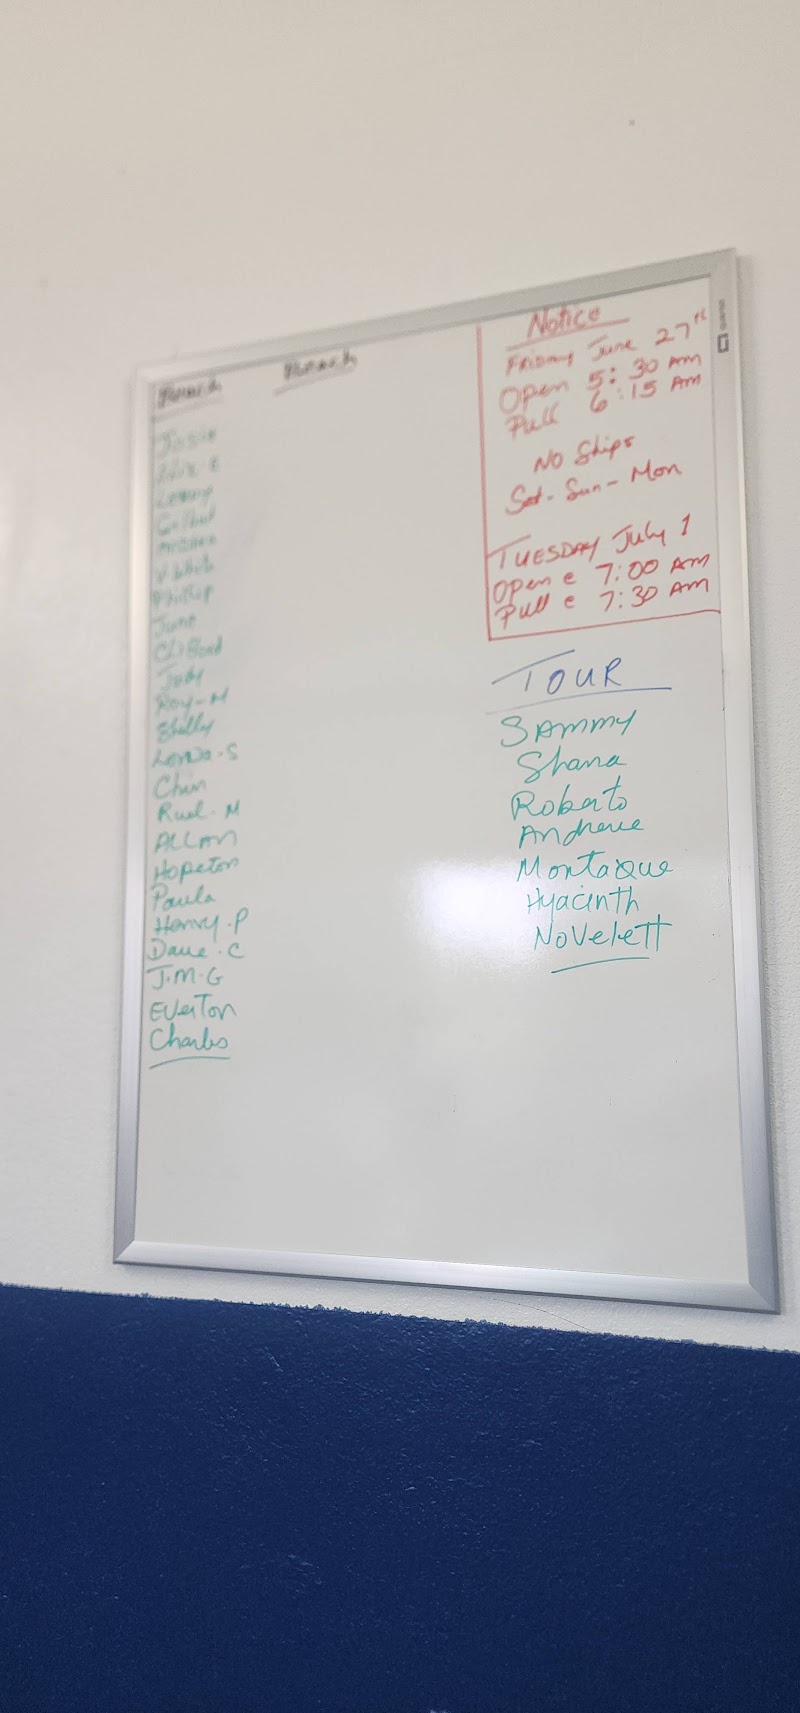 Josie
Lenny
Phillip
June
Clifford
Judy
Roy-M
Shelly
Lorna.S
Chin
Ruel.M
ALLAN
Hopeton
Paula
Henry.P
Dave.C
J.M.G
Everton
Charles
Notice
Friday June 27th
Open 5:30 AM
Pull 6:15 AM
NO Ships
Sat-Sun-Mon
TUESDAY July 1
Open e 7:00 AM
Pull e 7:30 AM
TOUR
SAMMY
Shana
Roberto
Andreue
Montaque
Hyacinth
NoVelett